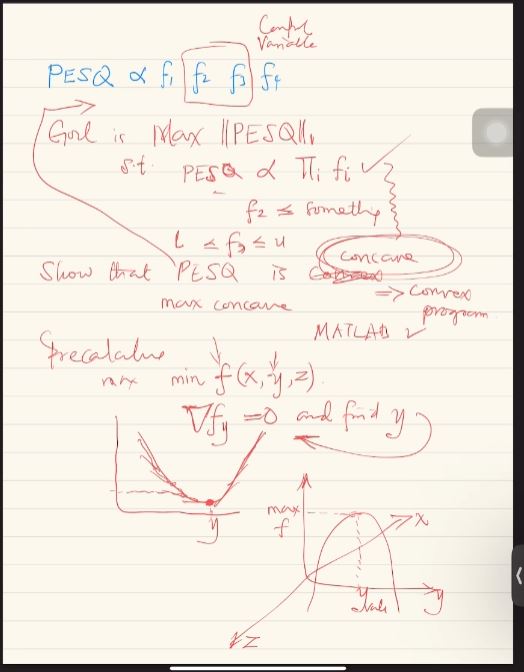 Control
Variable
PESQ ∝ f₁ f₂ f₃ f₄
Goal is Max ||PESQ||₁
s.t. PESQ ∝ Πᵢ fᵢ ✓
f₂ ≤ Somethig
L ≤ f₃ ≤ u
concave
Show that PESQ is
max concave
=> convex
program
MATLAB ✓
Precalculate
max min f(x, y, z).
∇f_y = 0 and find y
y
max
f
x
y
y
z